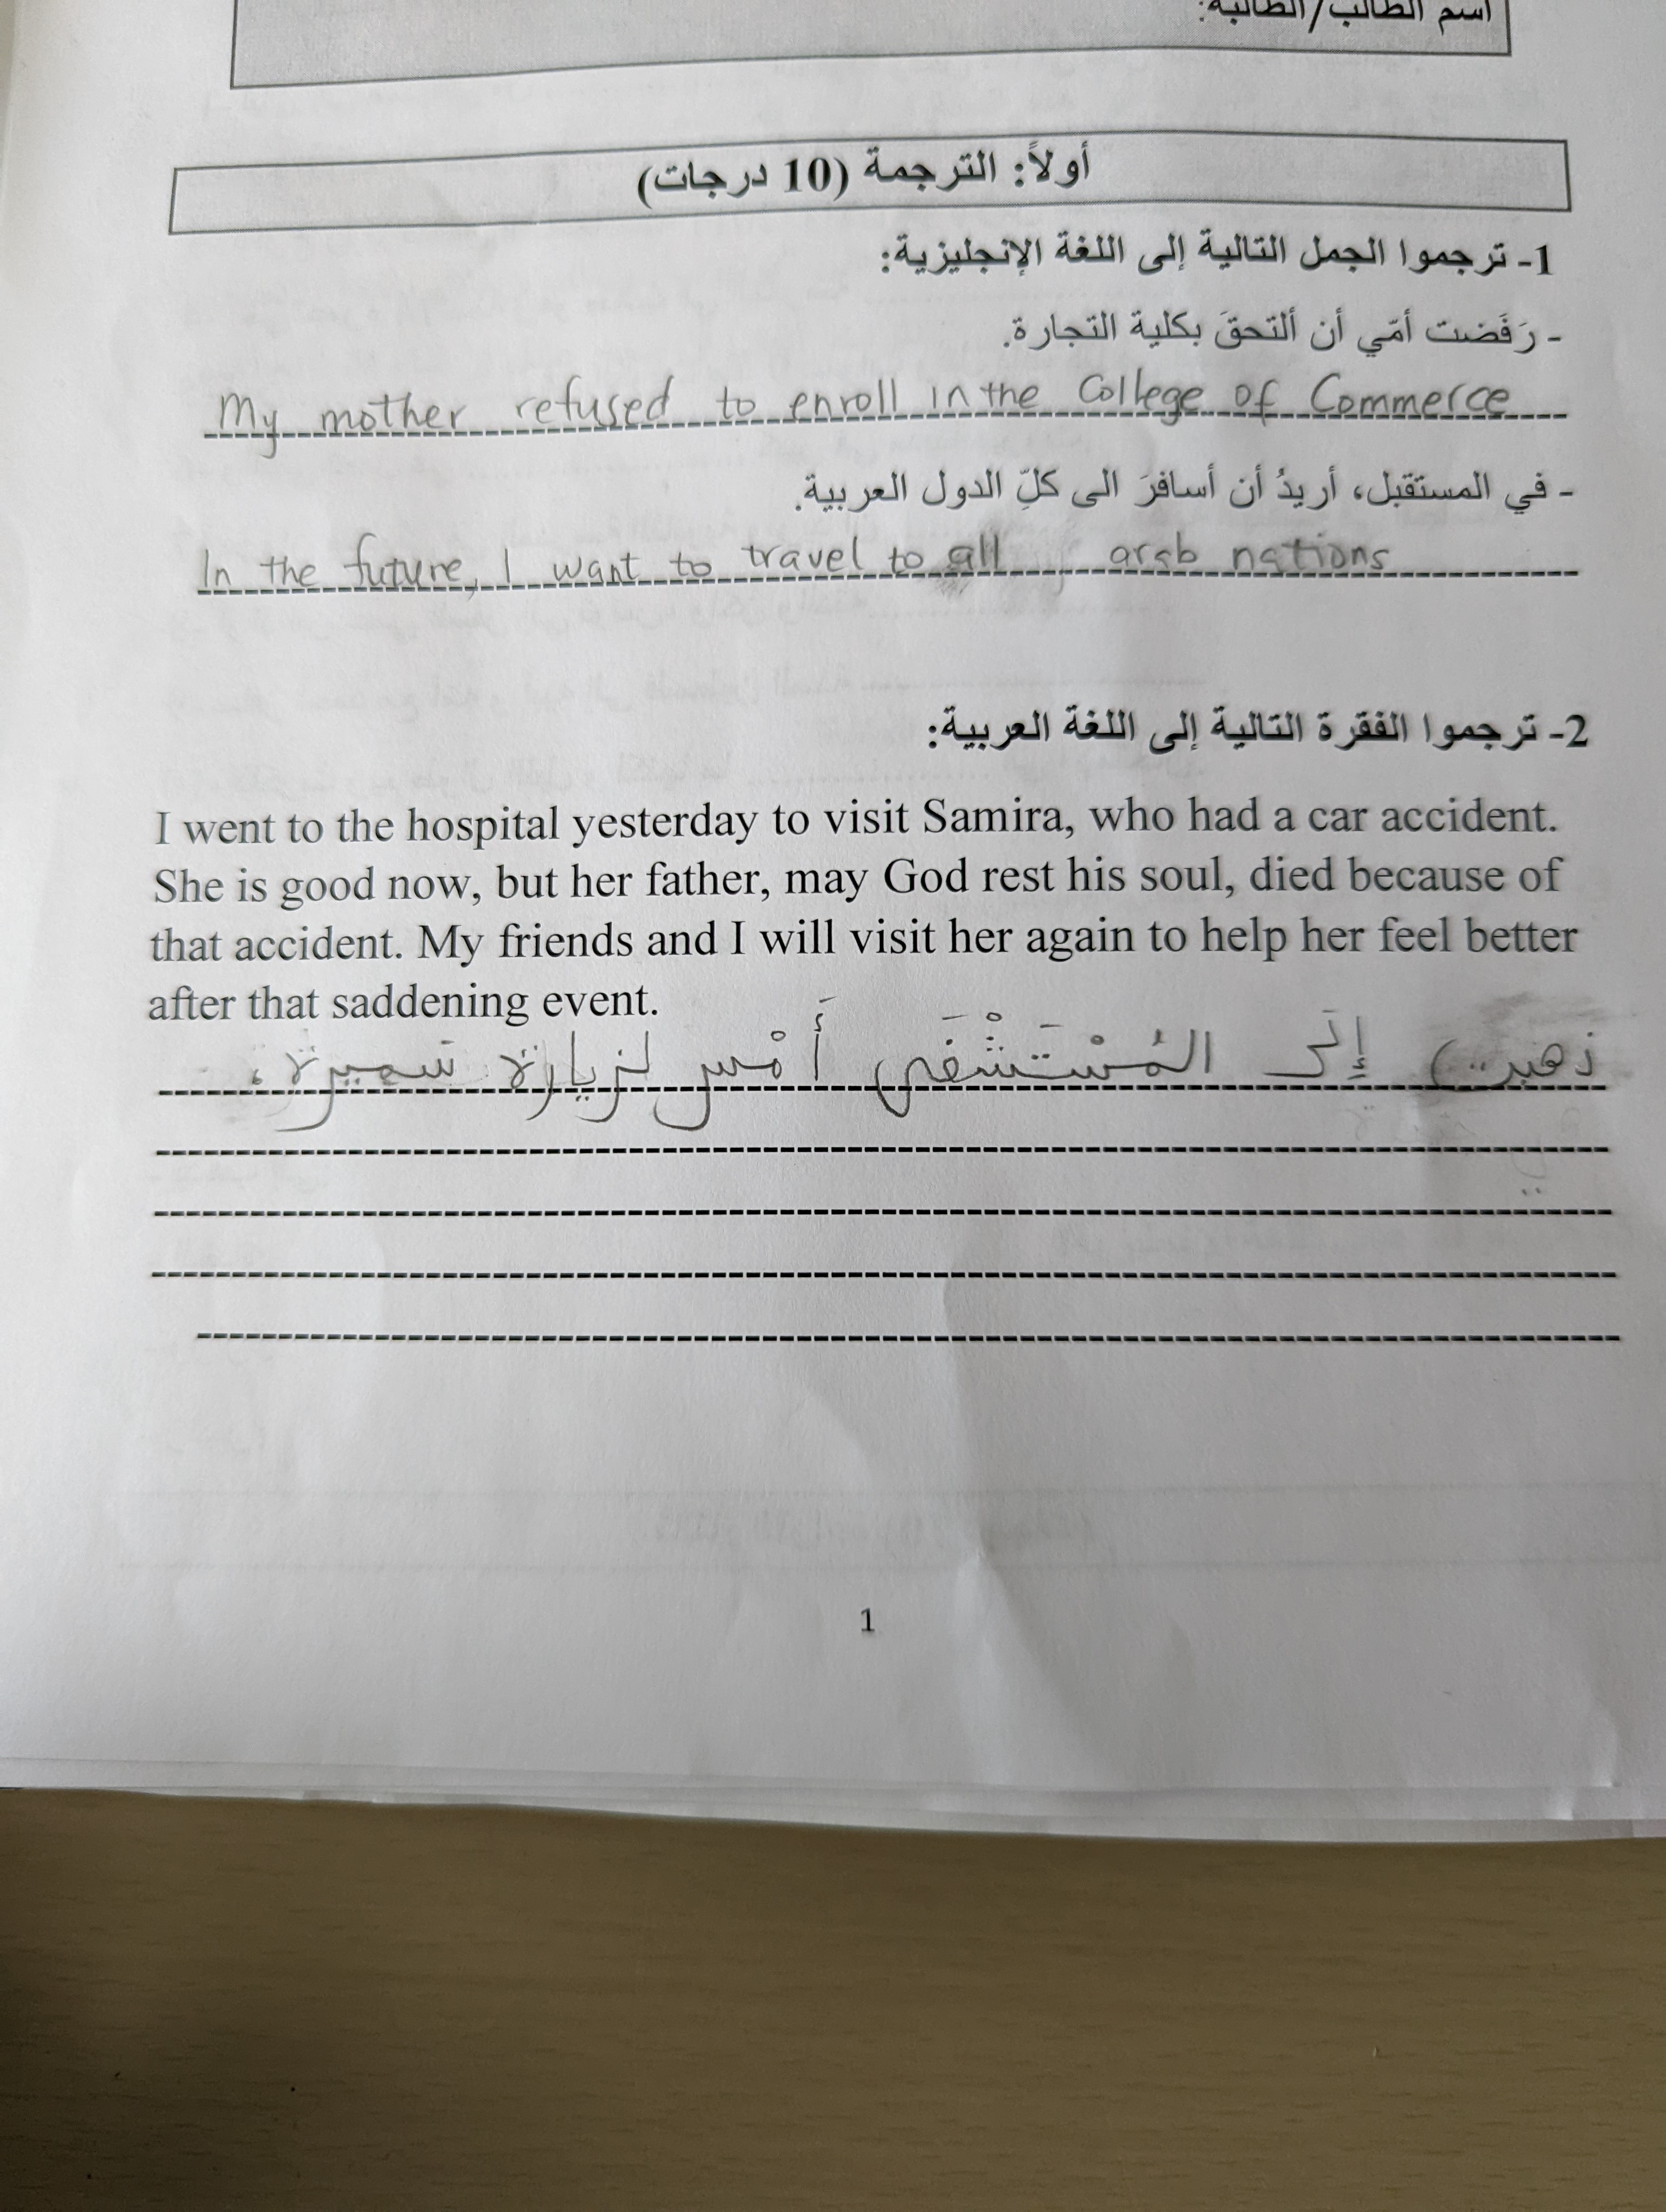 اسم الطالب/الطالبة:
أولاً: الترجمة (10 درجات)
1- ترجموا الجمل التالية إلى اللغة الإنجليزية:
- رَفَضت أمّي أن ألتحقَ بكلية التجارة.
My mother refused to enroll in the College of Commerce
- في المستقبل، أريدُ أن أسافرَ الى كلِّ الدول العربية.
In the future, I want to travel to all arab nations
2- ترجموا الفقرة التالية إلى اللغة العربية:
I went to the hospital yesterday to visit Samira, who had a car accident.
She is good now, but her father, may God rest his soul, died because of
that accident. My friends and I will visit her again to help her feel better
after that saddening event.
ذهبت إلَى المُسْتَشْفَى أَمْس لزيارة سميرة،
1